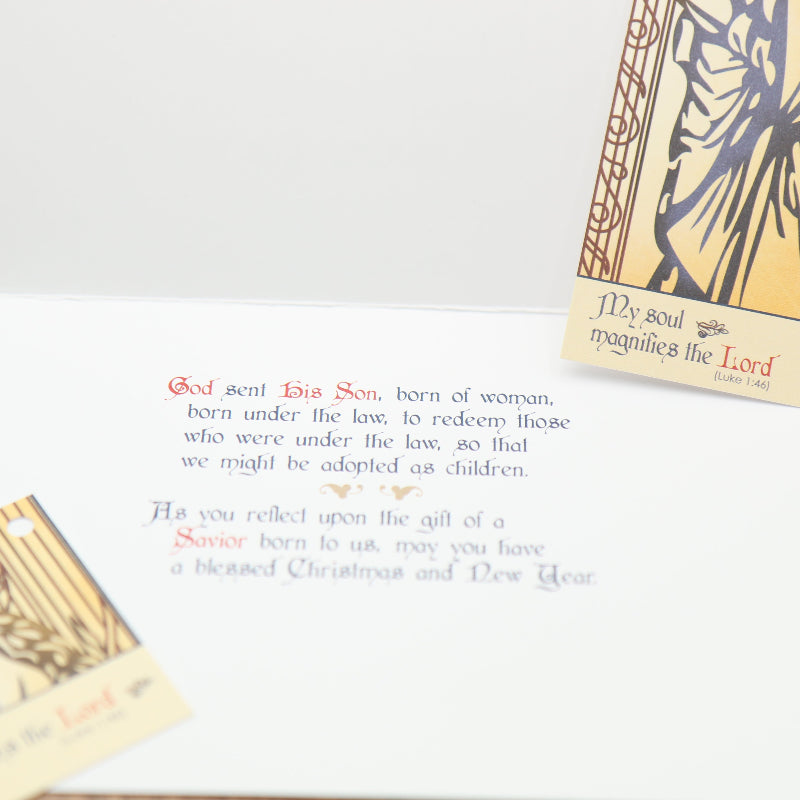 My soul
magnifies the Lord
(Luke 1:46)
God sent His Son, born of woman,
born under the law, to redeem those
who were under the law, so that
we might be adopted as children.
As you reflect upon the gift of a
Savior born to us, may you have
a blessed Christmas and New Year.
the Lord